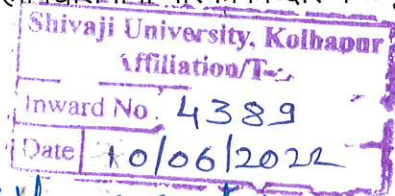 Shivaji University, Kolhapur
Affiliation/T-
Inward No. 4389
Date 10/06/2022